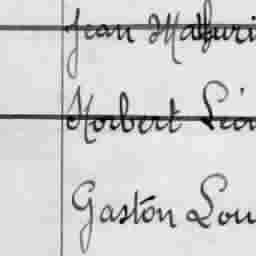 Jean Mathuri
Norbert Léo
Gaston Lou